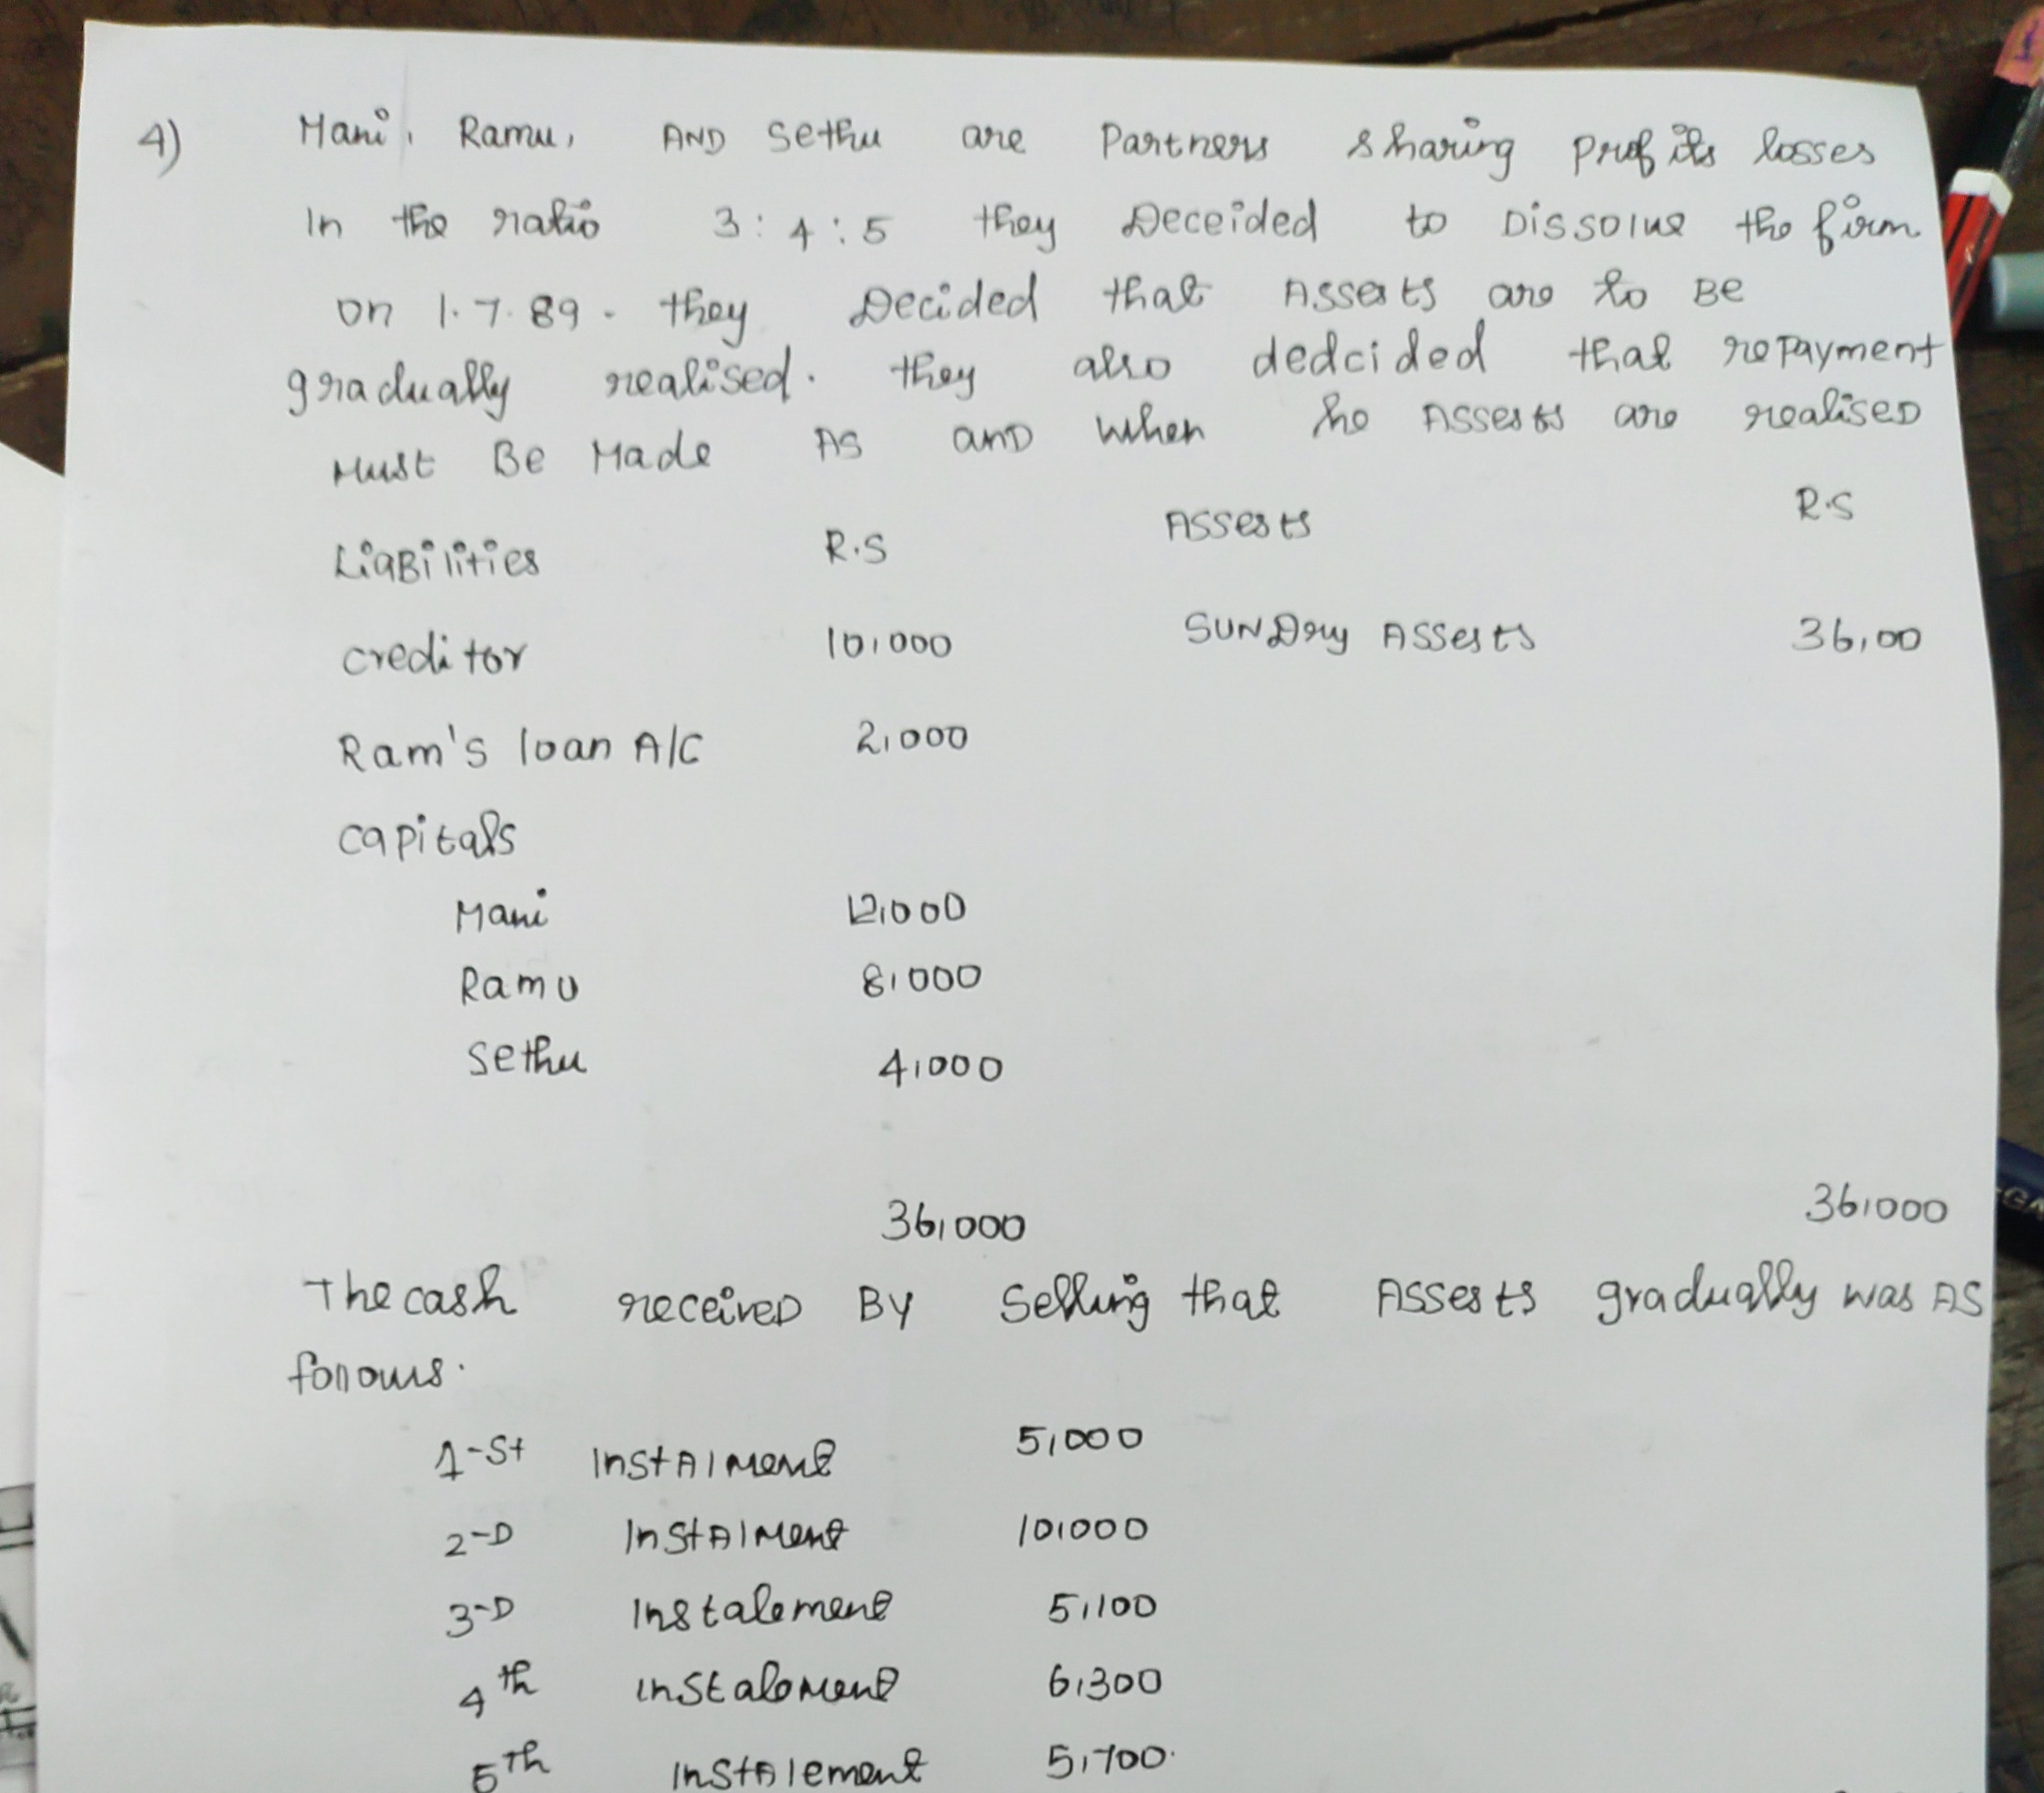 4) Mani, Ramu, AND Sethu are Partners sharing profits losses
In the ratio 3:4:5 they Deceided to Dissolve the firm
on 1.7.89. they Decided that Assests are to Be
gradually realised. they also dedcided that repayment
Must Be Made As and when the Assests are realised
Liabilities R.S Assests R.S
creditor 10,000 SUNDry Assests 36,00
Ram's loan A/C 2,000
capitals
Mani 12,000
Ramu 8,000
Sethu 4,000
36,000 36,000
The cash received By Selling that Assests gradually was As
follows.
1-St InstAlment 5,000
2-D InstAlment 10,000
3-D Instalement 5,100
4th instalement 6,300
5Th InstAlement 5,700.